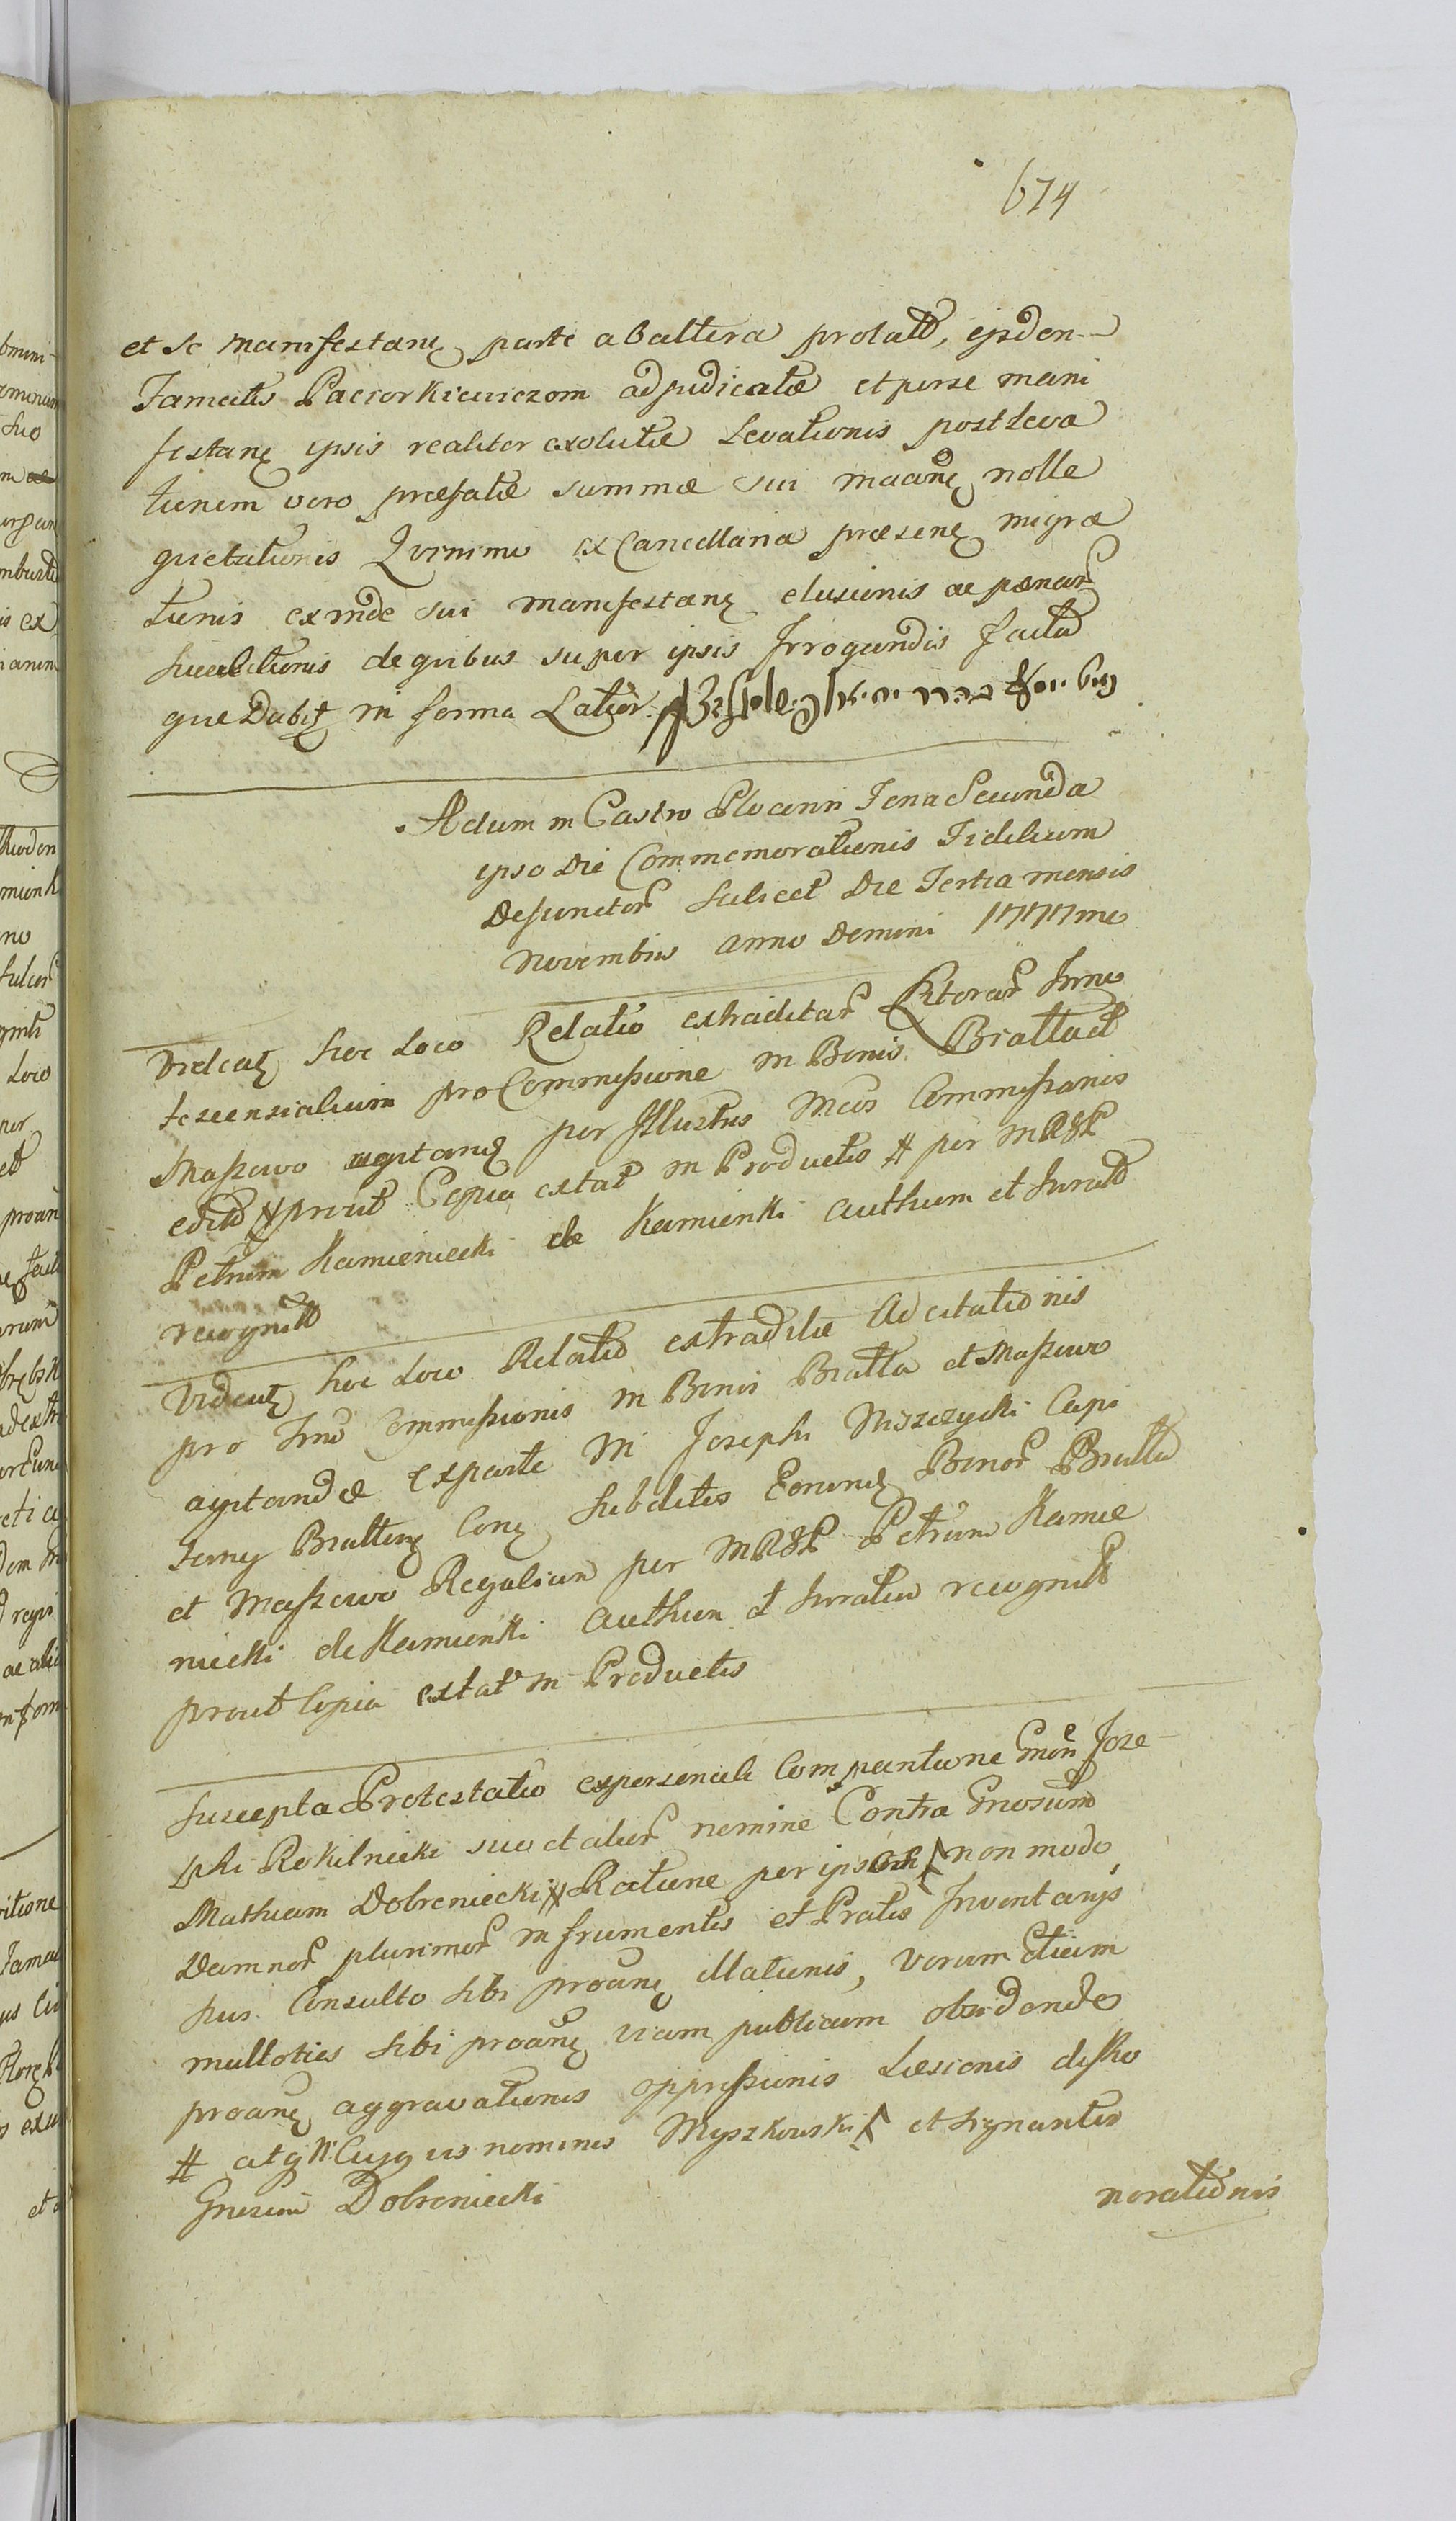 674
et se manifestanꝫ parte ab altera prolatd, ejsdem
Famatis Paciorkiewiczom adjudicatæ et per se mani
festanꝫ ipsis realiter exolutæ Levationis post leva
tionem vero præfatæ summæ sui maanꝫ nolle
quietationis Qvinimo ex Cancellaria præsenꝫ migra
tionis exinde sui manifestanꝫ elusionis ac pœnarᷓ
succubitionis de quibus super ipsis Irrogandis facta
que Dabiꝫ in forma Latior.
Actum in Castro Plocenn Feria Secunda
ipso Die Commemorationis Fidelium
Defunctorᷓ scilicet Die Tertia mensis
Novembris anno Domini 1777mo
Videatꝫ hoc Loco Relatio extraditarᷓ Lttorarᷓ Inno
tescensialium pro Commissione in Bonis Bialla et
Maszewo agitanꝫ per Illustres Mcos Commissarios
editd # prout Copia extat in Productis # per MRSP
Petrum Kamieniecki de Kamienki authum et Juratd
recognitd
Videatꝫ hoc Loco Relatio extraditæ Adcitationis
pro Tmo Commissionis in Bonis Bialla et Maszewo
agitandæ Ex parte M Josephi Niszczycki Capi
tenej Biallenꝫ Conꝫ Subditos Eorunꝫ Bonorᷓ Bialla
et Maszewo Regalium per MRSP Petrum Kamie
niecki de Kamienki authum et Juratum recognitd
prout Copia extat in Productis
Suscepta Protestatio ex personali Comparitione Gnoe Jose-
phi Rokitnicki suo et aliorᷓ nomine Contra Gnosum
Mathiam Dobrzeniecki # Ratione per ipsum non modo
Damnorᷓ plurimorᷓ in frumentis et Pratis Inventarijs
suis Consulto sibi proanꝫ illationis, verum etiam
multoties sibi proanꝫ viam publicam obsidendo
proanꝫ aggravationis oppressionis Læsionis disho
# atq N. Cujq is nominis Myszkowski et signanter
Gnosum Dobrzeniecki
norationis